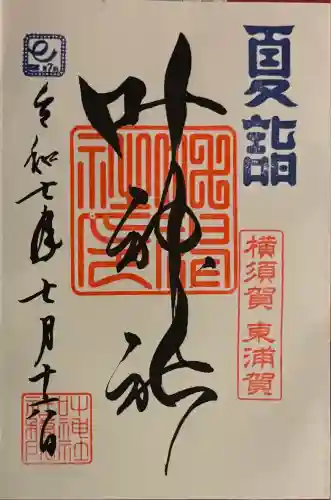 夏詣
横須賀 東浦賀
叶神社
令和七年七月十六日